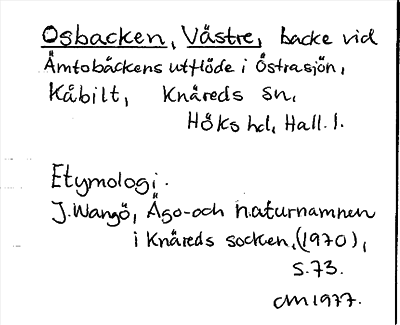 Osbacken, Västre, backe vid
Åmtobäckens utflöde i Östrasjön,
Kåbilt, Knäreds sn,
Höks hd, Hall. l.
Etymologi.
J. Wangö, Ägo- och naturnamnen
i Knäreds socken, (1970),
s. 73.
CM 1977.